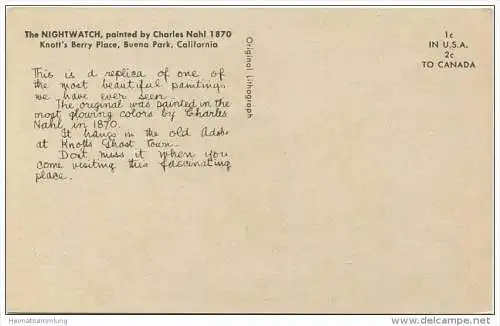 The NIGHTWATCH, painted by Charles Nahl 1870
Knott's Berry Place, Buena Park, California
This is a replica of one of
the most beautiful paintings
we have ever seen.
The original was painted in the
most glowing colors by Charles
Nahl in 1870.
It hangs in the old Adobe
at Knotts Ghost Town.
Dont miss it when you
come visiting this fascinating
place.
Original Lithograph
1c
IN U.S.A.
2c
TO CANADA
Heimatsammlung
http://www.ansichtskarten-center.de